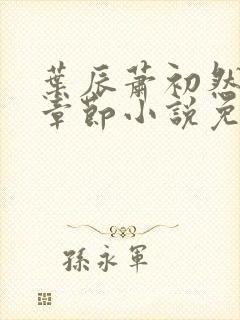 葉辰蕭初然
章節小說免
孫永軍